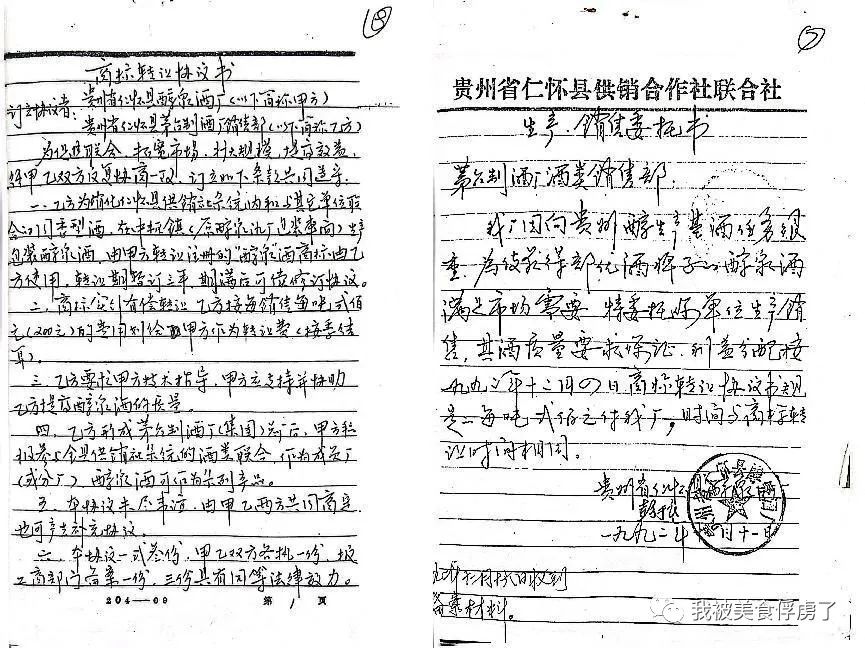 18
商标转让协议书
订立协议者: 贵州省仁怀县醇泉酒厂(以下简称甲方)
贵州省仁怀县茅台制酒厂销售部(以下简称乙方)
为促进联合、拓宽市场、壮大规模、提高效益,
经甲乙双方反复协商一致, 订立如下条款共同遵守:
一、乙方为优化仁怀县供销社系统内和与其它单位联
合的同香型酒, 在中枢镇(原醇泉酒厂包装车间)生产
包装醇泉酒, 由甲方转让注册的“醇泉”酒商标由乙
方使用, 转让期暂订三年, 期满后可续签订协议。
二、商标实行有偿转让, 乙方按每销售每吨贰佰
元(200元)的费用划给甲方作为转让费(按季结
算)。
三、乙方要求甲方技术指导, 甲方应支持并协助
乙方提高醇泉酒的质量。
四、乙方形成茅台制酒厂(集团)前后, 甲方积
极参与全县供销社系统的酒类联合, 作为成员厂
(或分厂) 醇泉酒可作为系列产品。
五、本协议未尽事宜, 由甲乙两方共同商定,
也可产生补充协议。
六、本协议一式叁份, 甲乙双方各执一份, 报
工商部门备案一份, 三份具有同等法律效力。
204—09 第 1 页
5
贵州省仁怀县供销合作社联合社
生产、销售委托书
茅台制酒厂酒类销售部:
我厂因向贵州醇生产基酒任务很
重, 为使获得部优酒牌子的醇泉酒
满足市场需要, 特委托你单位生产销
售, 其酒质量要求保证, 利益分配按
一九九二年十二月四日商标转让协议书规
定: 每吨贰佰元付我厂, 时间与商标转
让时间相同。
贵州省仁怀
一九九二年 月十一日
收到
备案材料。
我被美食俘虏了